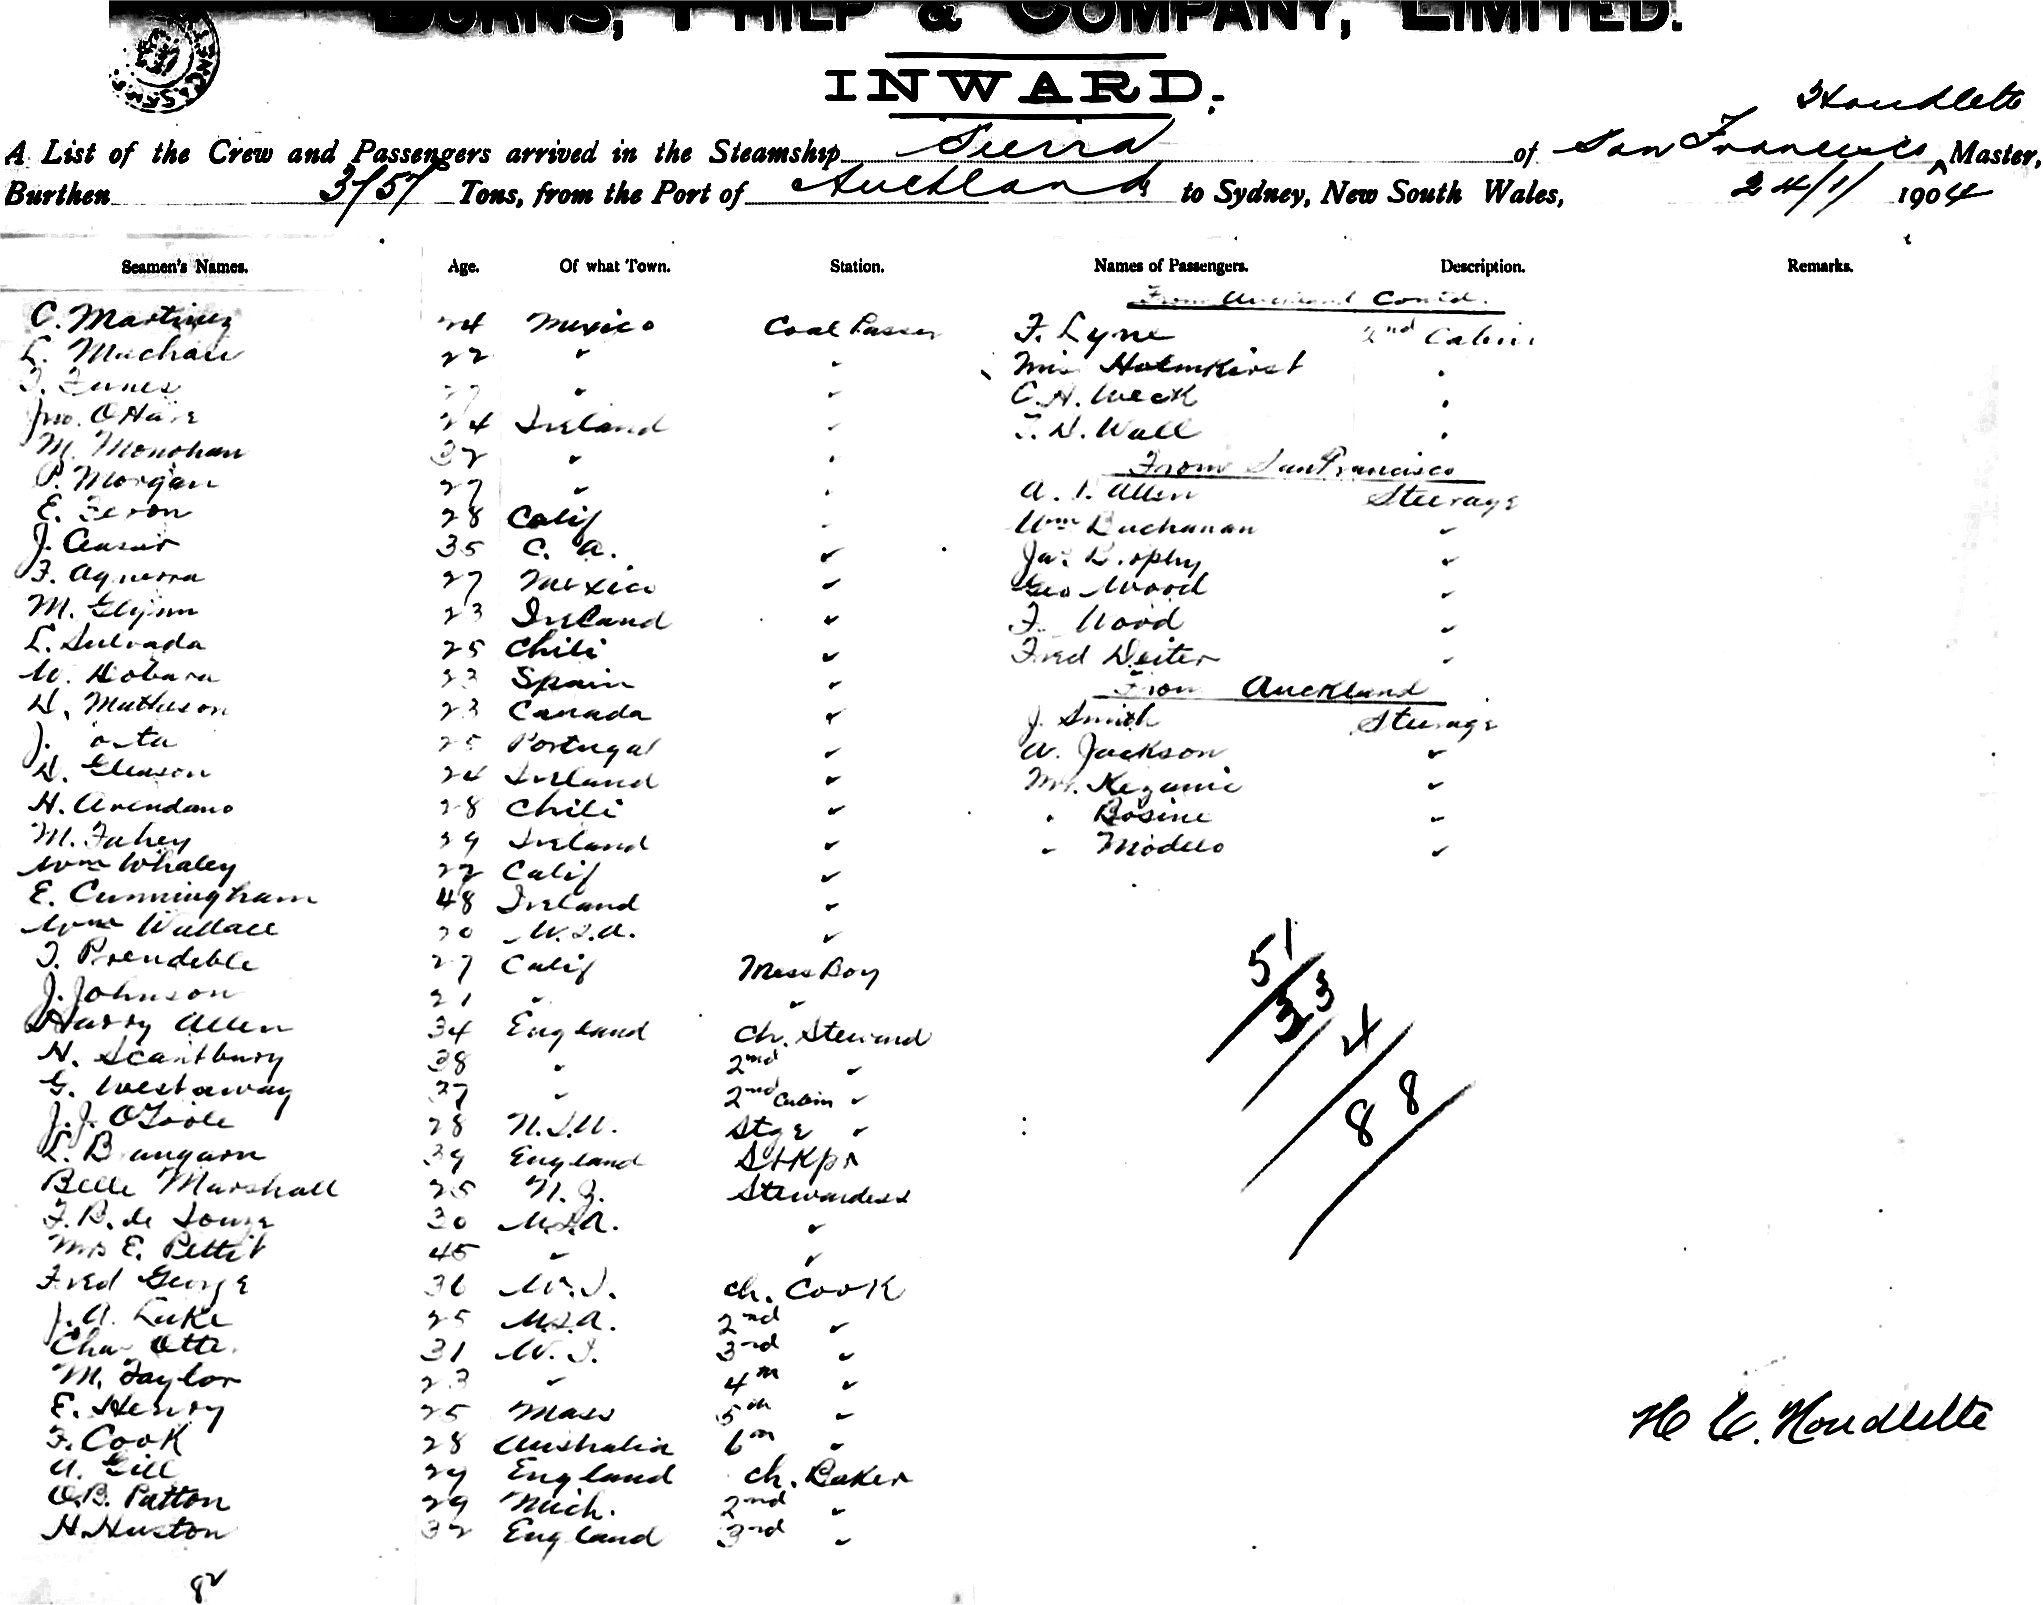 BURNS, PHILP & COMPANY, LIMITED.
INWARD.
Houdlette
A List of the Crew and Passengers arrived in the Steamship Sierra of San Francisco Master,
Burthen 3/5/ Tons, from the Port of Auckland to Sydney, New South Wales, 24/1/ 1904
Seamen's Names. Age. Of what Town. Station. Names of Passengers. Description. Remarks.
From Auckland Contd.
C. Martinez 24 Mexico Coal Passer F. Lyne 2nd Cabin
L. Machari 22 " " Miss Holmkirst "
22 " " C. H. Weck "
Jno. O'Hare 24 Ireland " Wall "
M. Monohan 32 " " From San Francisco
P. Morgan 27 " " A. Allen Steerage
E. Feron 28 Calif " Wm Buchanan "
J. Ceasar 35 C. A. " Jas Brophy "
F. Aguerra 27 Mexico " Geo Wood "
M. Glynn 23 Ireland " F. Wood "
L. Sulvada 25 Chili " Fred Deiter "
W. Dobara 23 Spain " From Auckland
D. Matheson 23 Canada " J. Smith Steerage
J. 25 Portugal " A. Jackson "
D. Gleason 24 Ireland " Mr. Kezamic "
H. Avendano 28 Chili " " Bosine "
M. Fahey 29 Ireland " " Modelo "
Wm Whaley 22 Calif "
E. Cunningham 48 Ireland "
Wm Wallace 20 U.S.A. "
T. Prendeble 27 Calif Mess Boy
J. Johnson 21 " "
Harry Allen 34 England Ch. Steward
H. Scantbury 38 " 2nd "
G. Westaway 37 " 2nd Cabin "
J. J. O'Toole 28 N.S.W. Stge "
L. Bangarn 39 England StKpr
Belle Marshall 25 N. Z. Stewardess
F. B. de Souza 30 U.S.A. "
Mrs E. Pettit 45 " "
Fred George 36 W. I. Ch. Cook
J. A. Luke 25 U.S.A. 2nd "
Chas Otte 31 W. I. 3rd "
M. Taylor 23 " 4th "
E. Henry 25 Mass 5th "
F. Cook 28 Australia 6th "
A. Gill 29 England Ch. Baker
O.B. Patton 29 Mich. 2nd "
H. Huston 32 England 3rd "
51
33
4
88
H C. Houdlette
82